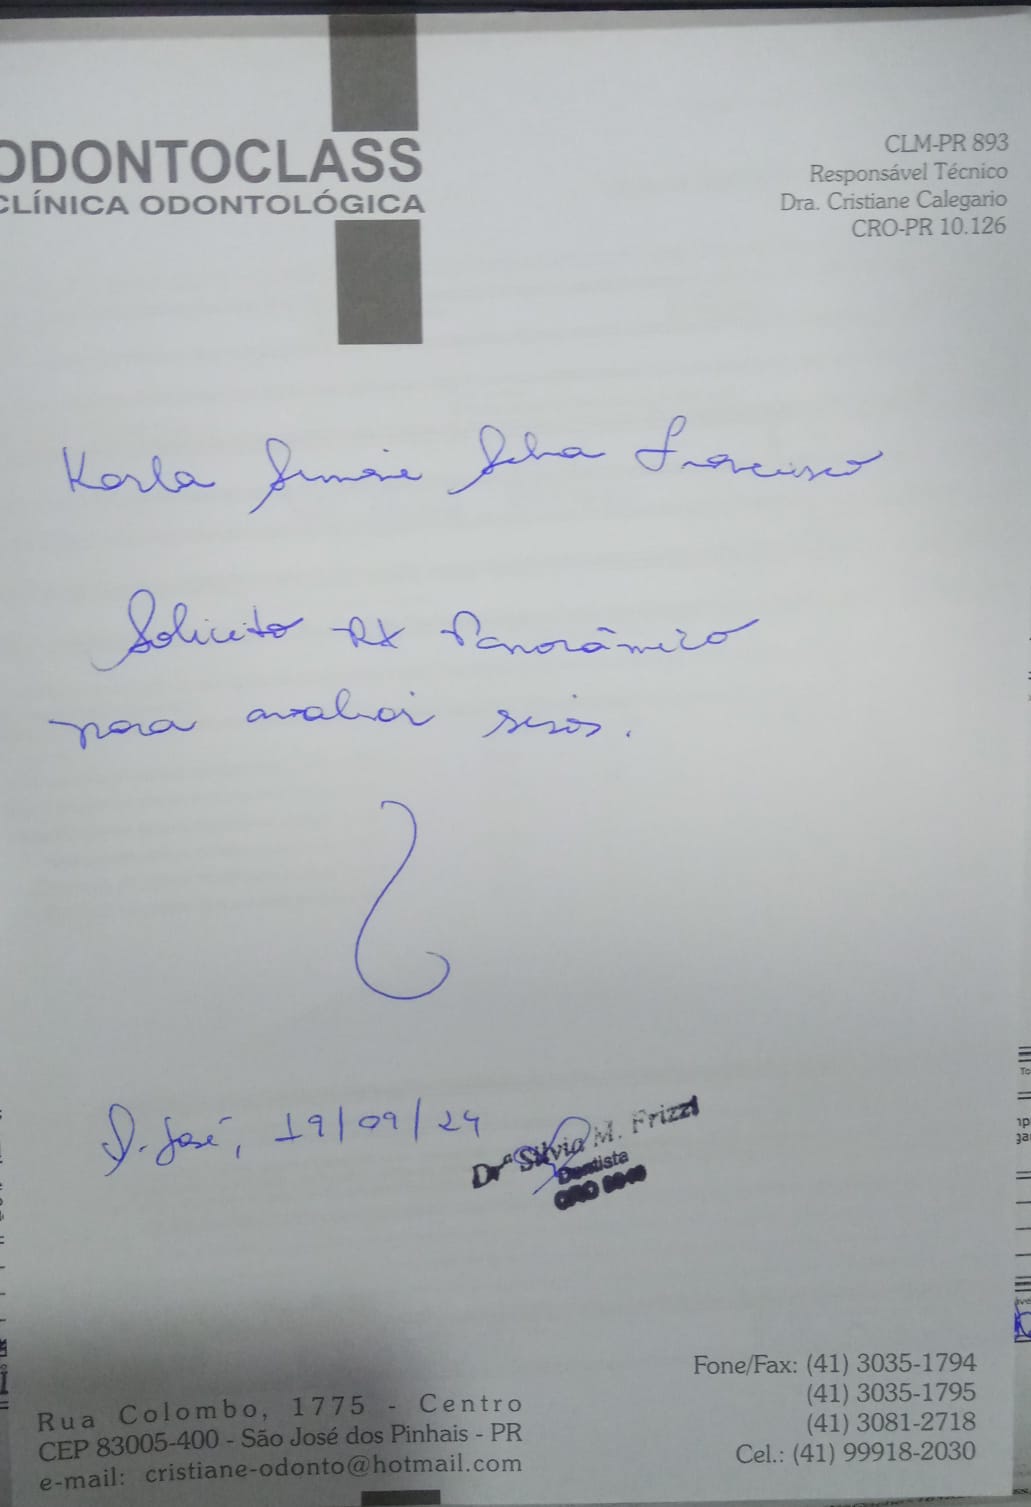 ODONTOCLASS
CLÍNICA ODONTOLÓGICA
CLM-PR 893
Responsável Técnico
Dra. Cristiane Calegario
CRO-PR 10.126
Karla Simone Silva Francisco
Solicito RX Panorâmico
para avaliar sisos.
S. José, 19/09/24
Drª Silvia M. Frizzi
Dentista
CRO
Rua Colombo, 1775 - Centro
CEP 83005-400 - São José dos Pinhais - PR
e-mail: cristiane-odonto@hotmail.com
Fone/Fax: (41) 3035-1794
(41) 3035-1795
(41) 3081-2718
Cel.: (41) 99918-2030